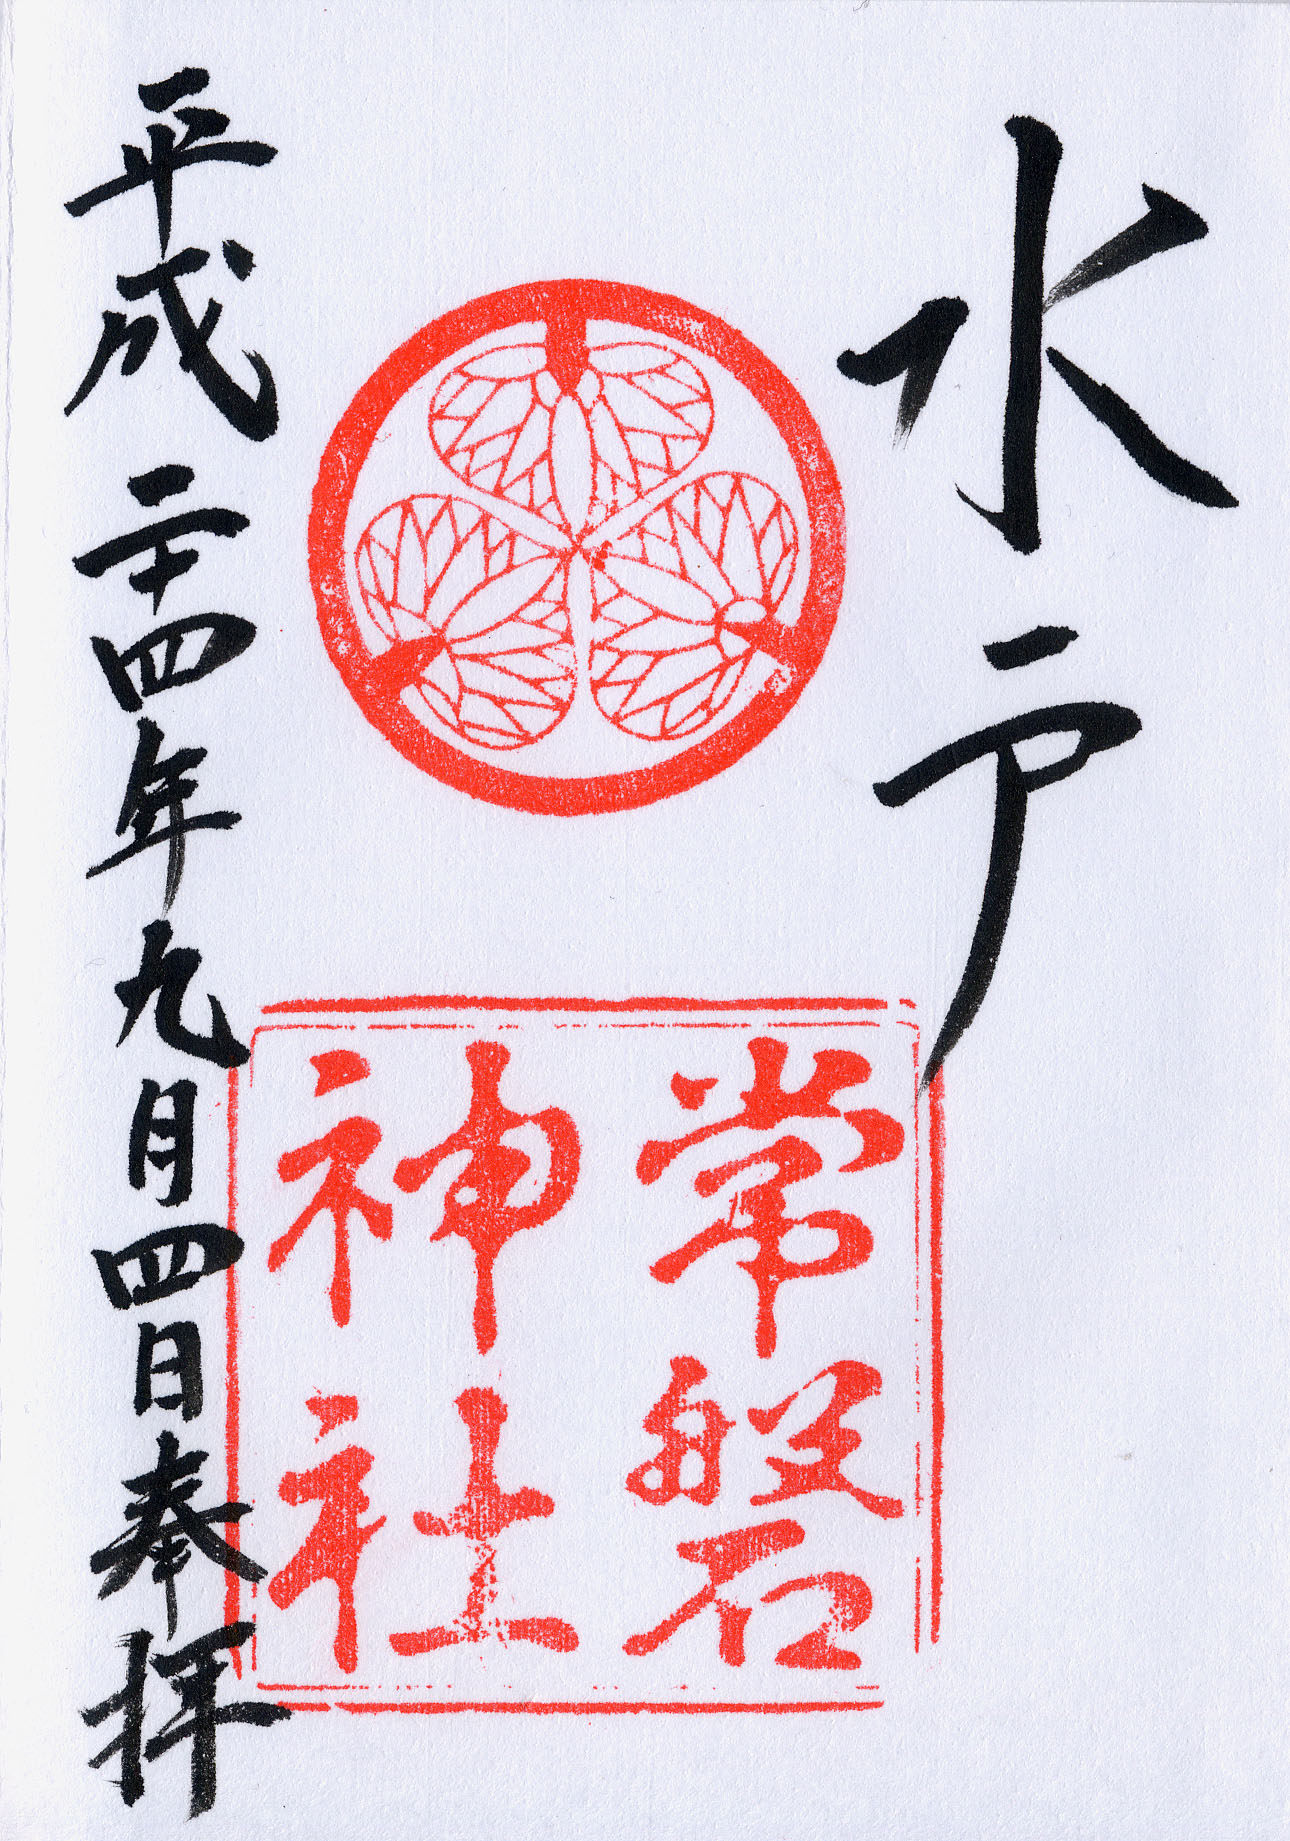 水戸
常磐
神社
平成二十四年九月四日奉拝